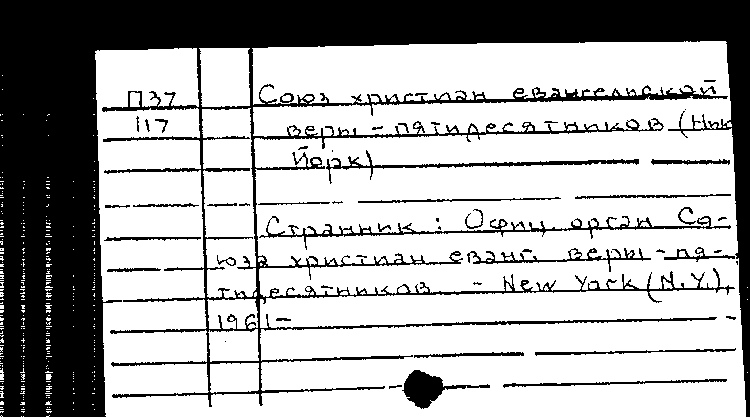 П37 Союз христиан евангельской
117 веры - пятидесятников (Нью
Йорк)
Странник: Офиц. орган Со-
юза христиан еванг. веры - пя-
тидесятников - New York (N.Y.),
1961-